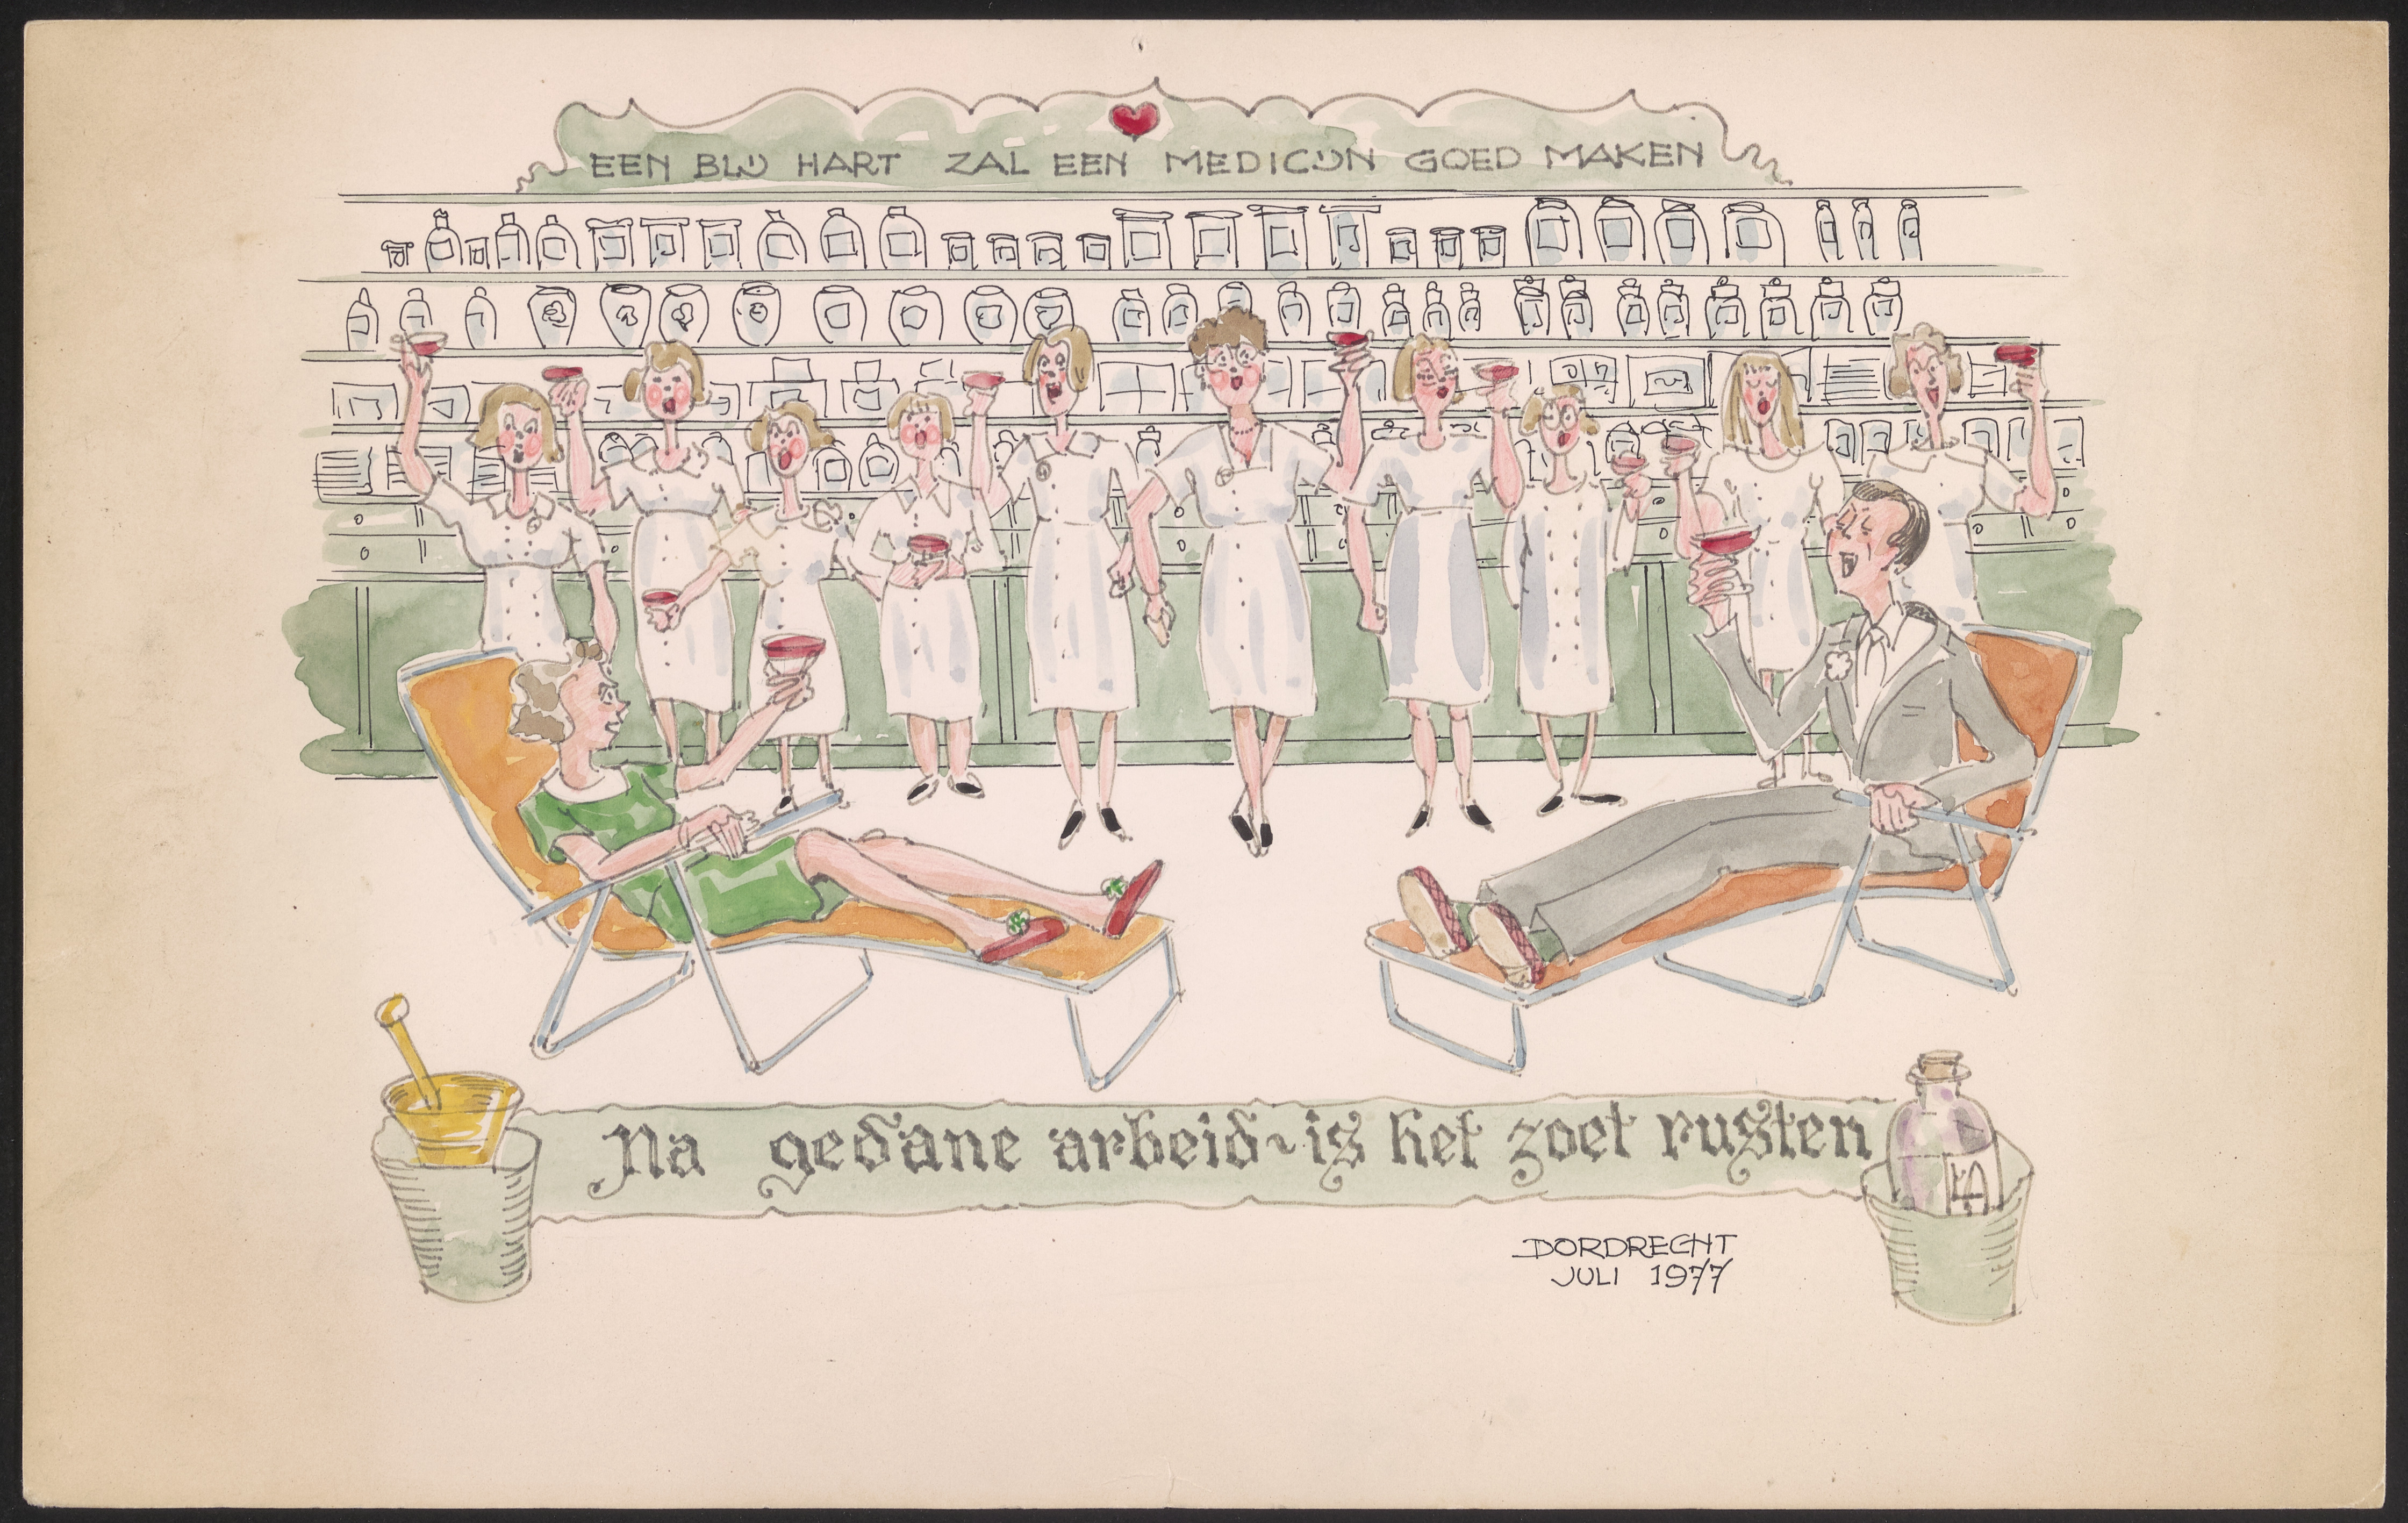 EEN BLIJ HART ZAL EEN MEDICIJN GOED MAKEN
Na gedane arbeid ~ is het zoet rusten
DORDRECHT
JULI 1977